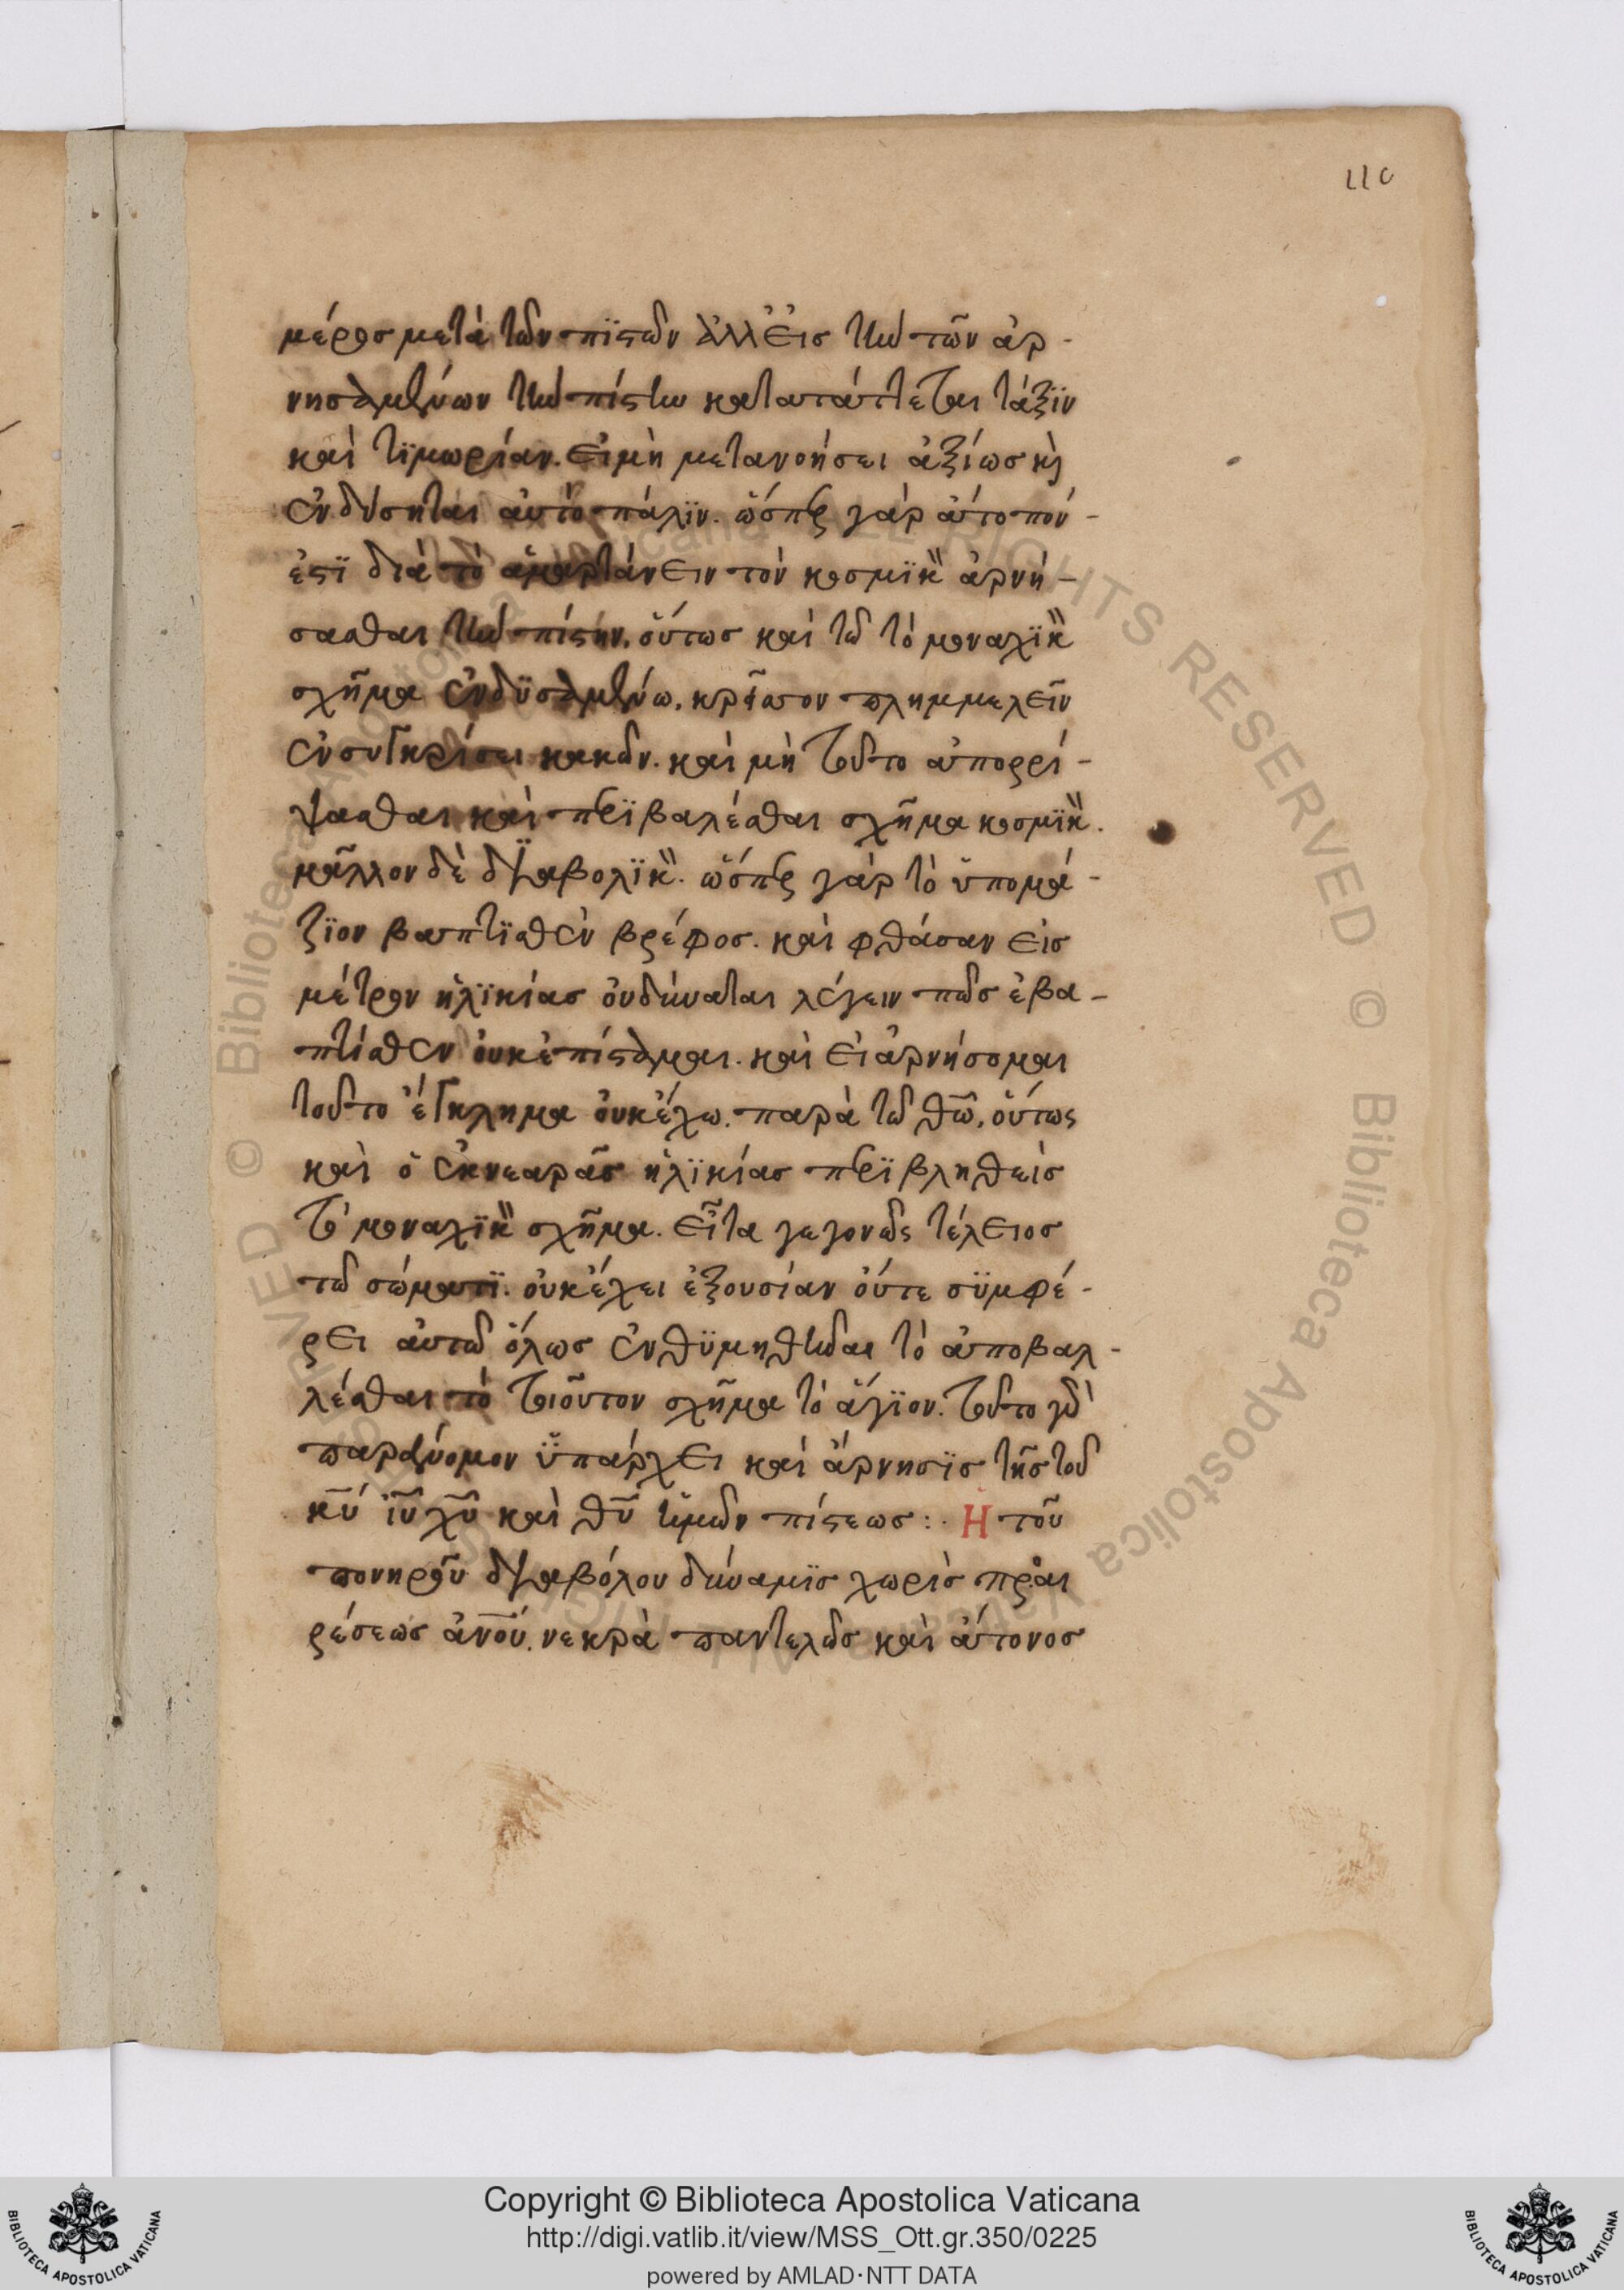 110
μέρος μετὰ τῶν πϊστῶν ἀλλ' εἰς τὴν τῶν ἀρ-
νησαμένων τὴν πίστιν κατατάττεται τάξϊν
καὶ τϊμωρίαν. εἰ μὴ μετανοήσει ἀξίως κ(αὶ)
ἐνδύσηται αὐτὸ πάλϊν. ὥσπερ γὰρ ἄτοπόν
ἐστϊ διὰ τὸ ἁμαρτάνειν τὸν κοσμϊκὸν ἀρνή-
σασθαι τὴν πίστην, οὕτως καὶ τῶ τὸ μοναχϊκὸν
σχῆμα ἐνδϋσαμένω. κρεῖττον πλημμελεῖν
ἐν συγκρίσει κακῶν. καὶ μὴ τοῦτο ἀπορρί-
ψασθαι καὶ περϊβαλέσθαι σχῆμα κοσμϊκὸν.
μᾶλλον δὲ δϊαβολϊκὸν. ὥσπερ γὰρ τὸ ὑπομά-
ζϊον βαπτϊσθὲν βρέφος. καὶ φθάσαν εἰς
μέτρον ἡλϊκίας οὐ δύναται λέγειν πῶς ἐβα-
πτίσθεν οὐκ ἐπίσταμαι. καὶ εἰ ἀρνήσομαι
τοῦτο ἔγκλημα οὐκ ἔχω. παρὰ τῶ θῶ, οὕτως
καὶ ὁ ἐκ νεαρᾶς ἡλϊκίας περϊβληθεὶς
τὸ μοναχϊκὸν σχῆμα. εἶτα γεγονὼς τέλειος
τῶ σώματϊ. οὐκ ἔχει ἐξουσίαν οὔτε σϋμφέ-
ρει αὐτῶ ὅλως ἐνθϋμηθῆναι τὸ ἀποβαλ-
λέσθαι τὸ τοιοῦτον σχῆμα τὸ ἅγϊον. τοῦτο γὰρ
παράνομον ϋπάρχει καὶ ἄρνησϊς τῆς τοῦ
κυ ιυ χυ καὶ θυ ἡμῶν πίστεως :· Ἡ τοῦ
πονηροῦ δϊαβόλου δύναμϊς χωρὶς προαι
ρέσεως ανου. νεκρὰ παντελῶς καὶ ἄτονος
Copyright © Biblioteca Apostolica Vaticana
http://digi.vatlib.it/view/MSS_Ott.gr.350/0225
powered by AMLAD·NTT DATA